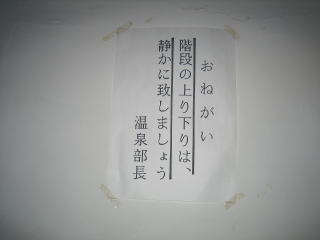 おねがい
階段の上り下りは、
静かに致しましょう
温泉部長